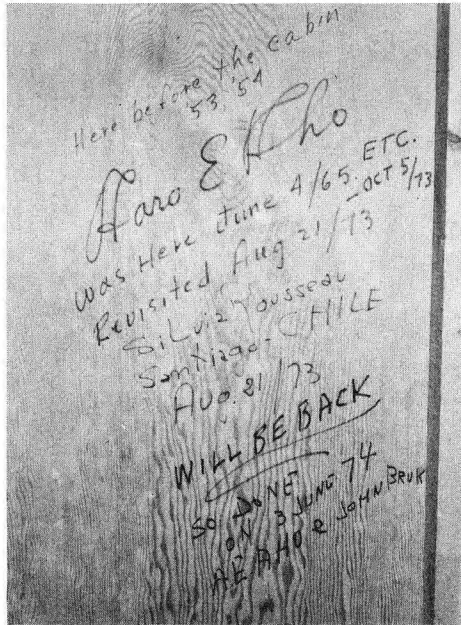 Here before the cabin
53, '54
Aaro E Aho
was Here June 4/65. ETC.
Revisited Aug 21/73 - OCT 5/73
SiLvia Tousseau
Santiago - CHILE
Aug. 21/73
WILL BE BACK
SO DONE
ON 3 JUNE 74
AE AHO & JOHN BRUK